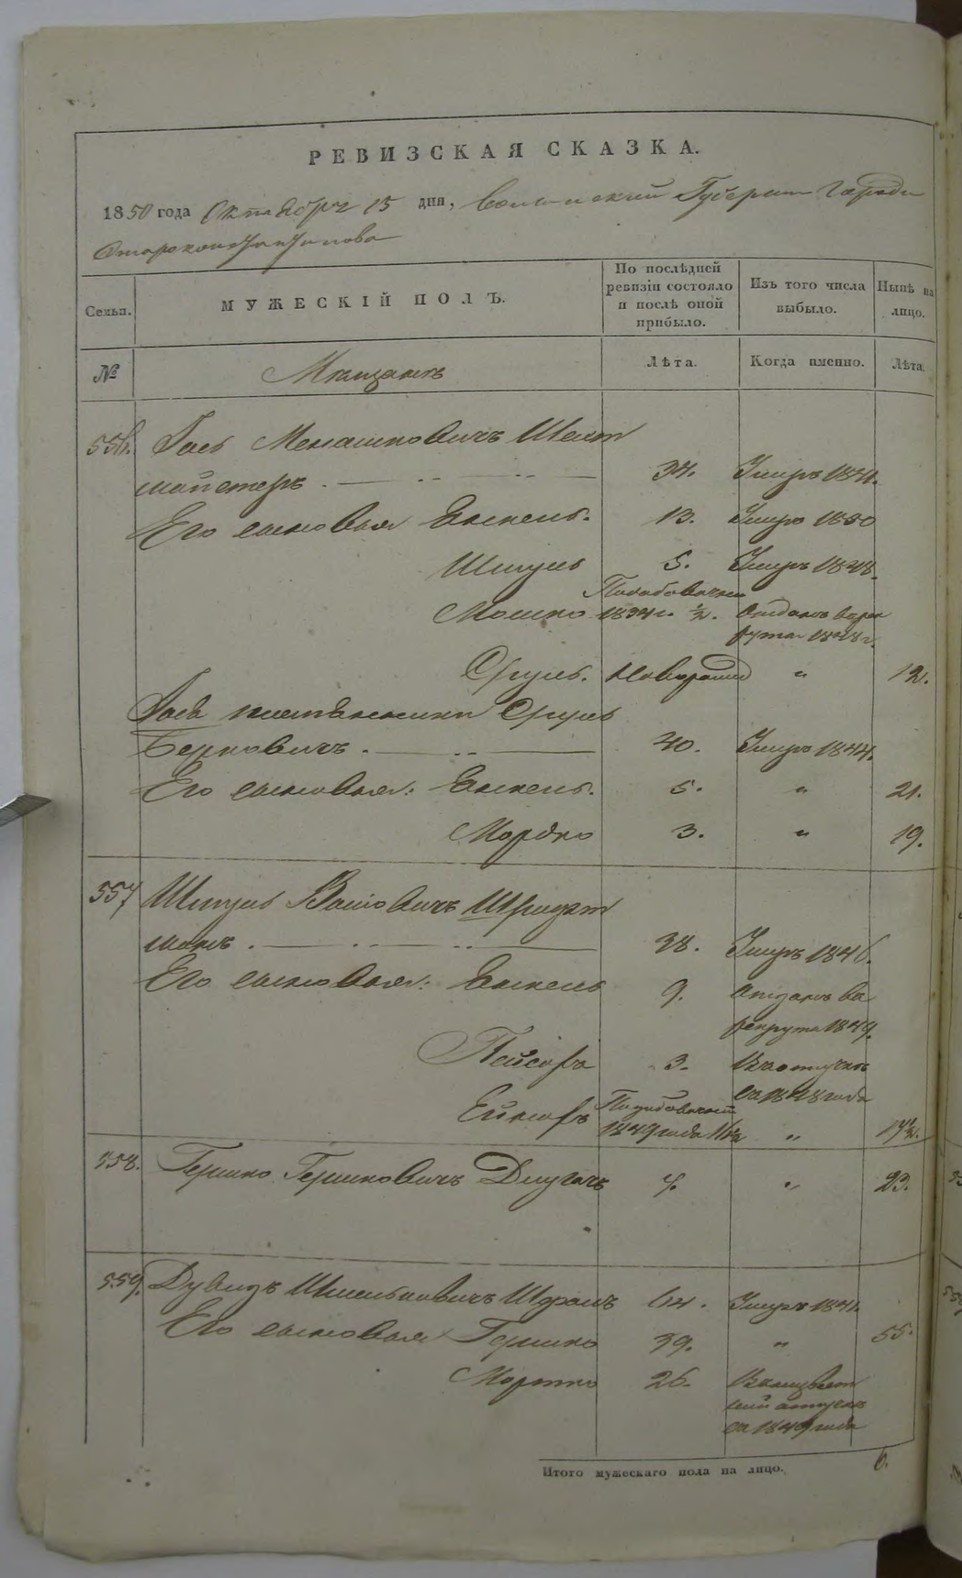 РЕВИЗСКАЯ СКАЗКА.
1850 года Октября 15 дня, Волынской Губернии Города
Староконстантинова
Семьи. МУЖЕСКІЙ ПОЛЪ. По послѣдней ревизіи состояло и послѣ оной прибыло. Изъ того числа выбыло. Нынѣ на лицо.
№ Мѣщанъ Лѣта. Когда именно. Лѣта.
556. Іось Менашковичъ
мейстеръ 34. Умеръ 1841.
Его сыновья Янкель. 13. Умеръ 1850
Шмуль 5. Умеръ 1848.
Мошко 1834 г. ½. Отданъ въ рек
рута 1848 г.
Сруль. Новорожд " 12.
Іося племянники Сруль
Берковичъ 40. Умеръ 1844.
Его сыновья: Янкель. 5. " 21.
Мордко 3. " 19.
557 Шмуль
манъ 38. Умеръ 1846.
Его сыновья: Янкель 9. Отданъ въ
рекрута 1849.
Пейсахъ 3. Въ отлучкѣ
съ 1848 года
"
558. Гершко Гершковичъ Длугачъ 7. " 23.
559. Дувидъ Шмельковичъ 64. Умеръ 1841.
Его сыновья Гершко 39. " 55.
Мортко 26. отлучкѣ
съ 1849 года
Итого мужескаго пола на лицо. 6.